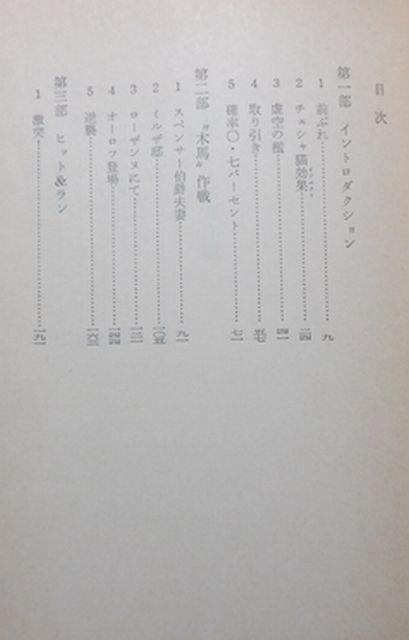 目次
第一部 イントロダクション
1 前ぶれ 九
2 チェシャ猫効果 二四
3 虚空の檻 四一
4 取り引き 五七
5 確率〇・七パーセント 七一
第二部 "木馬"作戦
1 スペンサー伯爵夫妻 九一
2 ミルザ邸 一〇五
3 ローザンヌにて 一二一
4 オーロフ登場 一四四
5 逆襲 一六三
第三部 ヒット&ラン
1 激突 一九一